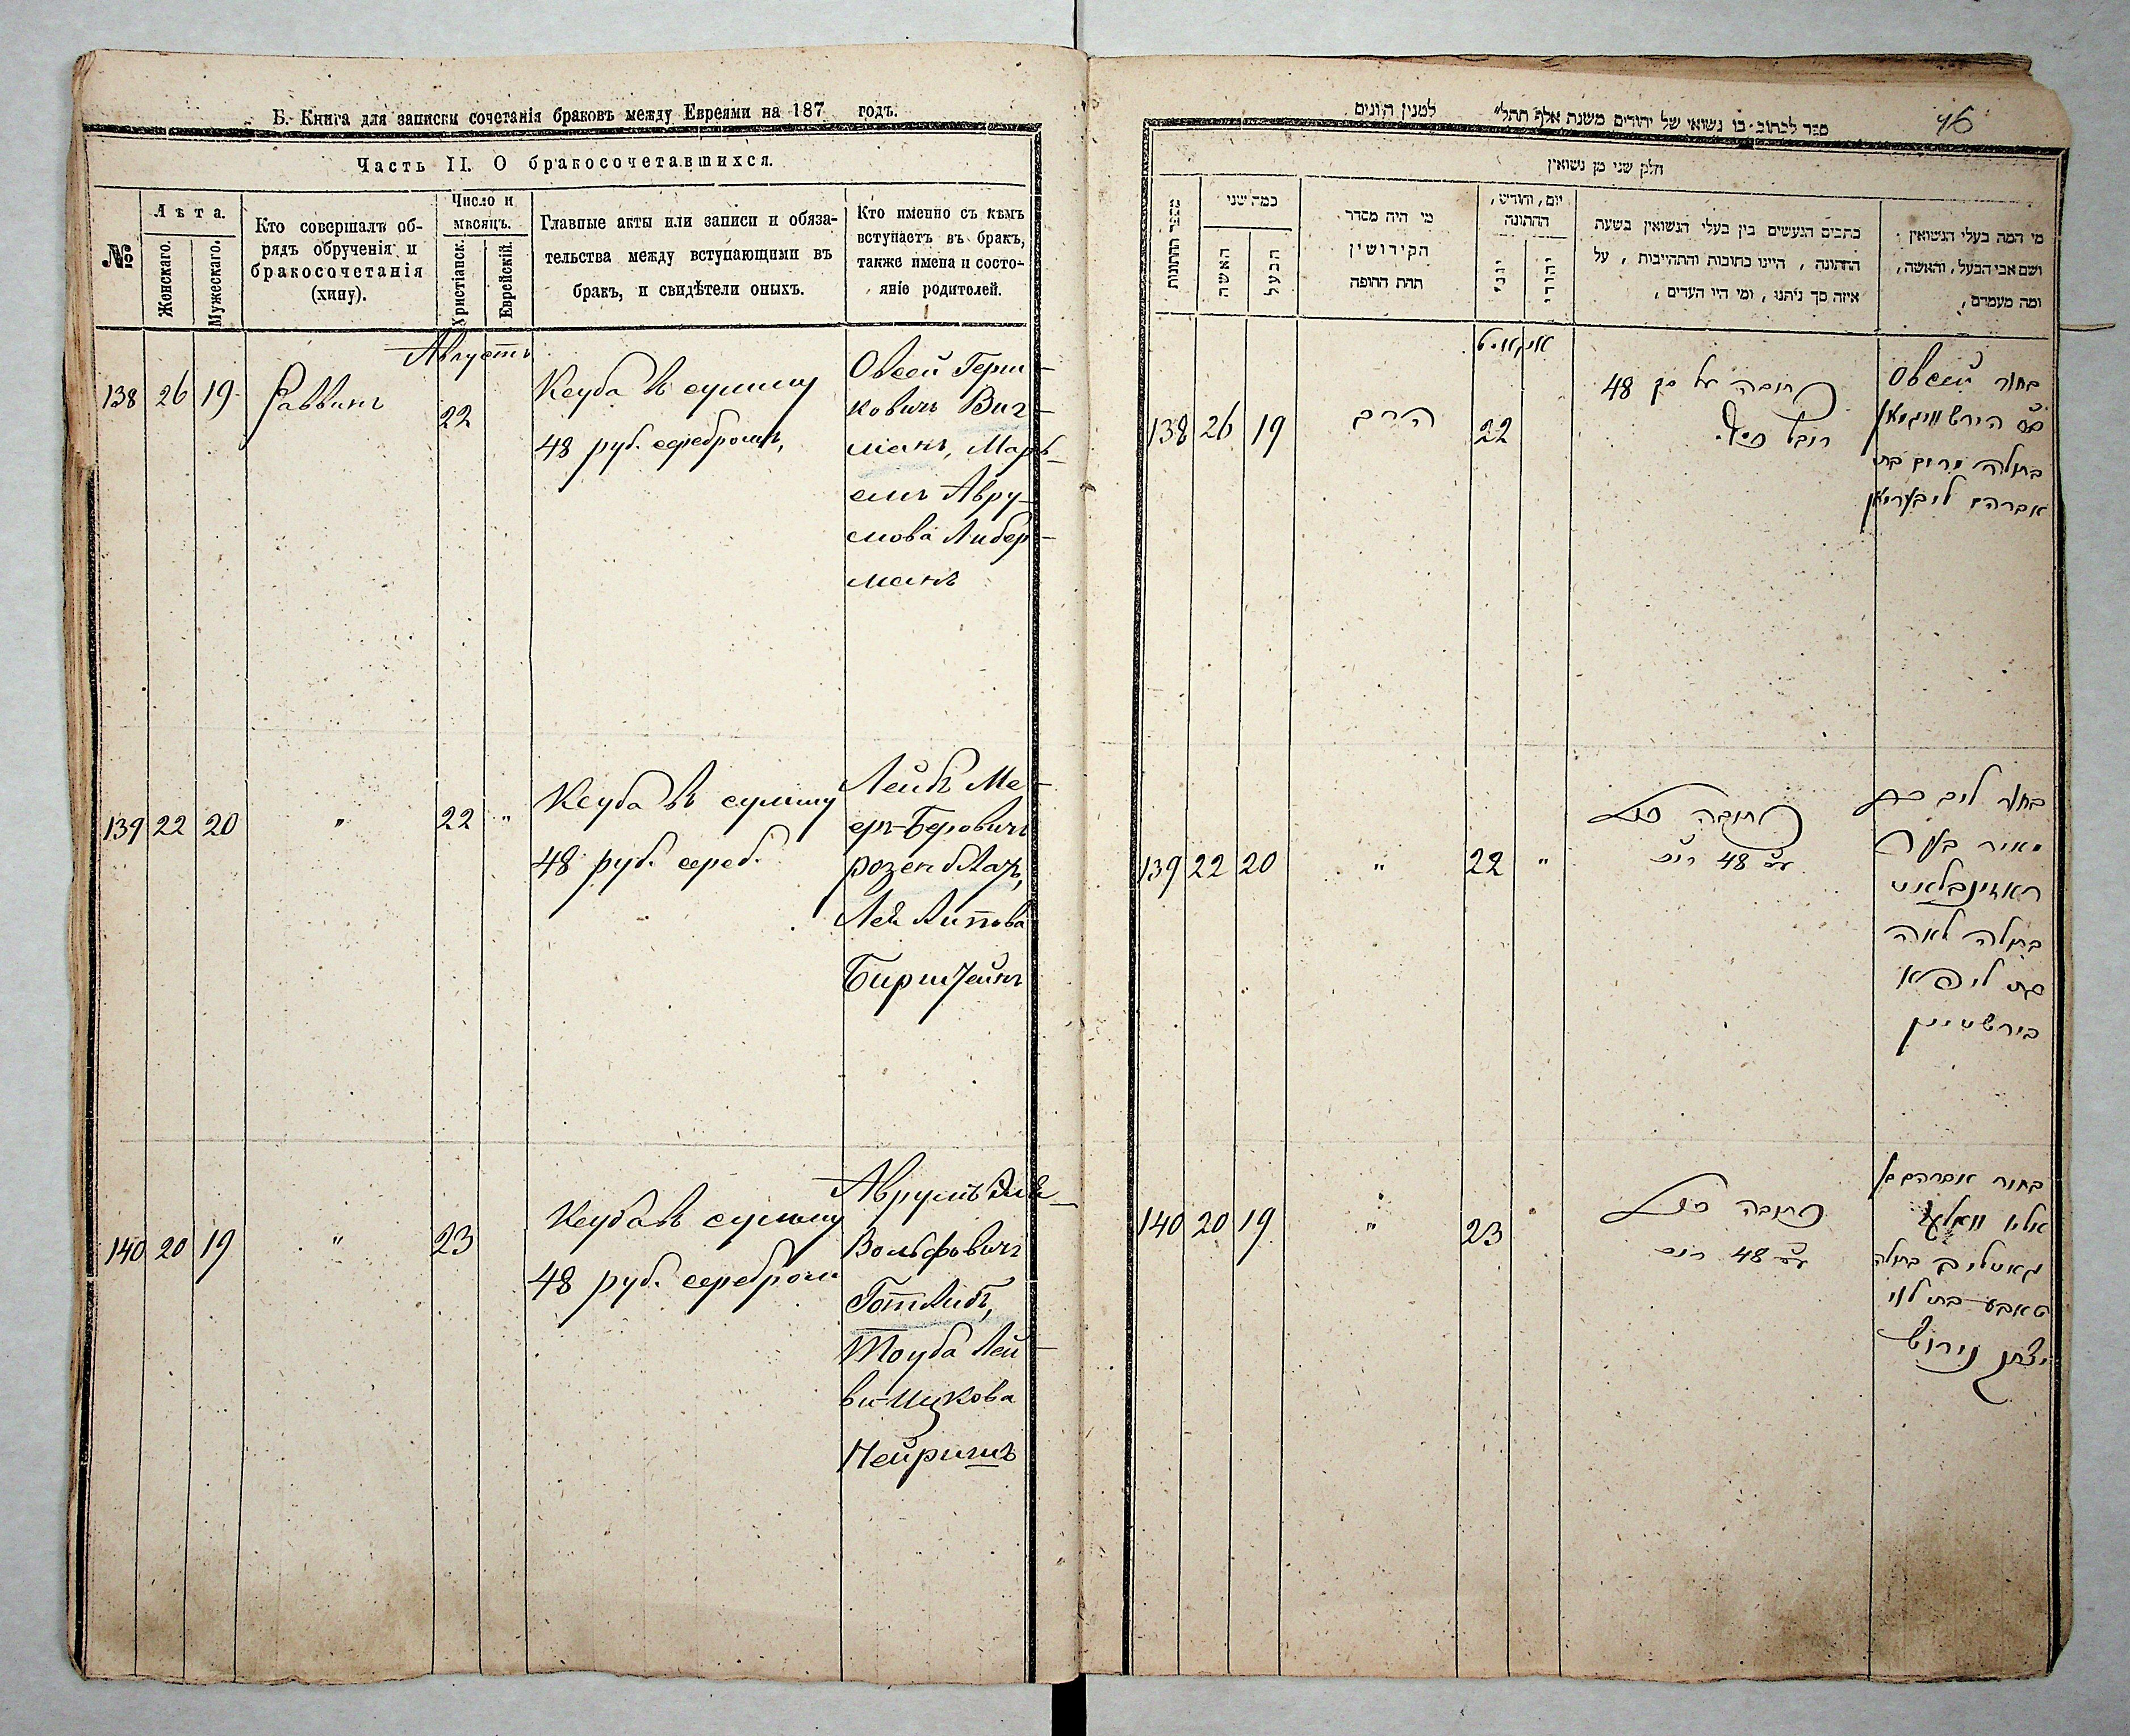 Б. Книга для записки сочетанія браковъ между Евреями на 187 годъ.
Часть II. О бракосочетавшихся.
№
Лѣта.
Женскаго.
Мужескаго.
Кто совершалъ об-
рядъ обрученія и
бракосочетанія
(хипу).
Число и
мѣсяцъ.
Христіанск.
Еврейскій.
Главные акты или записи и обяза-
тельства между вступающими въ
бракъ, и свидѣтели оныхъ.
Кто именно съ кѣмъ
вступаетъ въ бракъ,
также имена и состо-
яніе родителей.
Августъ
138 26 19 Раввинъ 22
Кеуба въ сумму
48 руб. серебромъ,
Овсей Герш-
ковичъ Виг-
манъ, Марь-
емъ Авру-
мова Либер-
манъ
139 22 20 " 22 "
Кеуба въ сумму
48 руб. сереб.
Лейбъ Ме-
еръ-Беровичъ
розенблатъ,
Лея Липова
Бирштейнъ
140 20 19 " 23
Кеуба въ сумму
48 руб. серебром
Аврумъ Эле-
Вольфовичъ
Готлибъ,
Тоуба Лей-
ви-Ицкова
Нейришъ
46
ספר לכתוב בו נשואי של יהודים משנת אלף תתל״ למנין היונים
חלק שני מן נשואין
מספר החתונות
כמה שני
האשה
הבעל
מי היה מסדר
הקידושין
תחת החופה
יום, וחודש,
החתונה
יוני
יהודי
כתבים הנעשים בין בעלי הנשואין בשעת
החתונה, היינו כתובות והתחייבות, על
איזה סך ניתנו, ומי היו העדים,
מי המה בעלי הנשואין
ושם אבי הבעל, והאשה,
ומה מעמדם,
אויגוסט
138 26 19 הרב 22
כתובה על סך 48
רובל כסף
בחור Овсей
ב״ר הירש וויגמאן
בתולה מרים בת
אברהם ליבערמאן
139 22 20 " 22 "
כתובה
48
בחור ליב בן
מאיר בער
ראזינבלאט
בתולה לאה
בת ליפא
בירשטיין
140 20 19 " 23
כתובה
48
בחור אברהם
אליו וואלף
גאטליב בתולה
טאבע בת לוי
יצחק נירוש